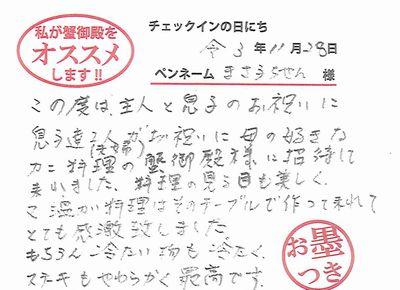 私が蟹御殿を
オススメ
します!!
チェックインの日にち
令3年11月28日
ペンネーム まさうちせん 様
この度は、主人と息子のお祝いに
息子達2人がお祝いに母の好きな
(夫婦)
カニ料理の蟹御殿様に招待して
来れました、料理の見る目も美しく、
温か料理はそのテーブルで作って来れて
とても感激致しました
もちろん冷たい物も冷たく、
ステーキもやわらかく最高です。
お墨
つき